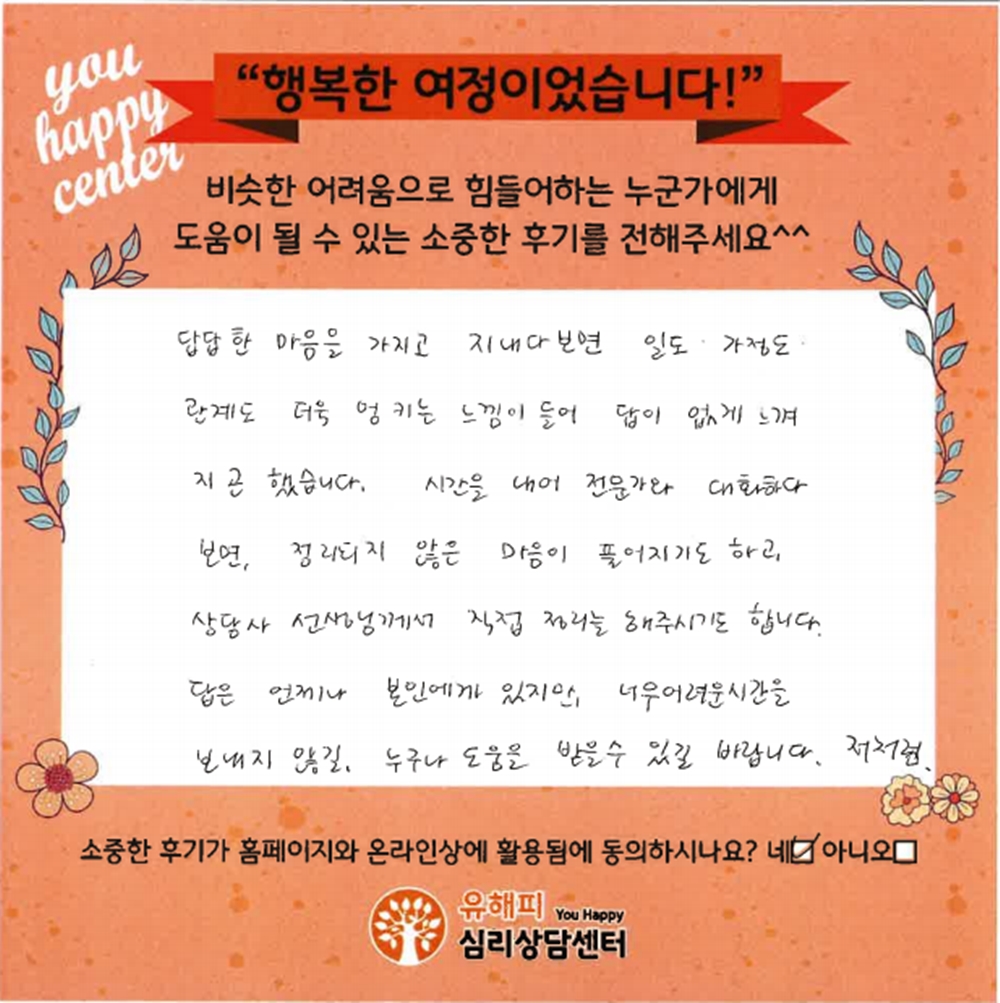 you
happy
center
“행복한 여정이었습니다!”
비슷한 어려움으로 힘들어하는 누군가에게
도움이 될 수 있는 소중한 후기를 전해주세요^^
답답한 마음을 가지고 지내다보면 일도 가정도
관계도 더욱 엉키는 느낌이 들어 답이 없게 느껴
지곤 했습니다. 시간을 내어 전문가와 대화하다
보면, 정리되지 않은 마음이 풀어지기도 하고,
상담사 선생님께서 직접 정리를 해주시기도 합니다.
답은 언제나 본인에게 있지만, 너무어려운시간을
보내지 않길, 누구나 도움을 받을수 있길 바랍니다. 저처럼.
소중한 후기가 홈페이지와 온라인상에 활용됨에 동의하시나요? 네☑ 아니오☐
유해피 You Happy
심리상담센터